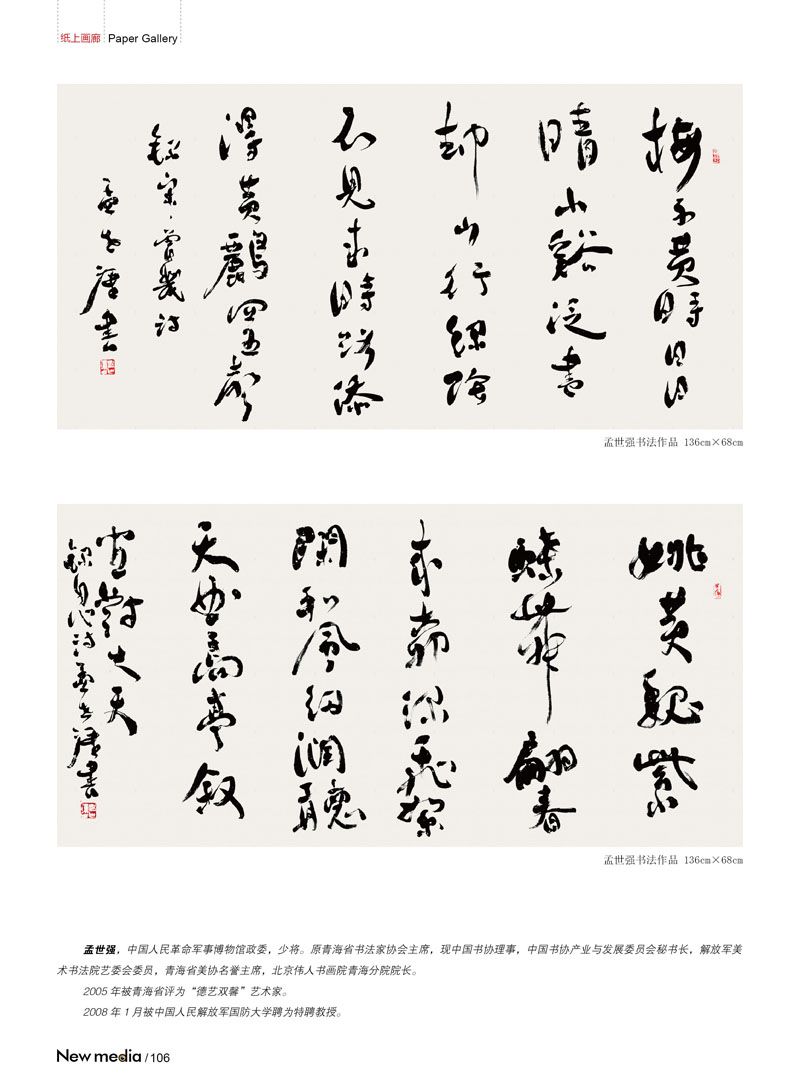 纸上画廊 Paper Gallery
梅子黄時日日
晴小谿泛盡
却山行綠陰
不見來時路添
得黄鸝四五聲
錄宋曾幾詩
孟世强書
孟世强书法作品 136cm×68cm
姚黄魏紫
蝶舞翩春
闌和風細潤聽
天高亭叙
孟世强書
孟世强书法作品 136cm×68cm
孟世强，中国人民革命军事博物馆政委，少将。原青海省书法家协会主席，现中国书协理事，中国书协产业与发展委员会秘书长，解放军美
术书法院艺委会委员，青海省美协名誉主席，北京伟人书画院青海分院院长。
2005 年被青海省评为“德艺双馨”艺术家。
2008 年 1 月被中国人民解放军国防大学聘为特聘教授。
New media / 106